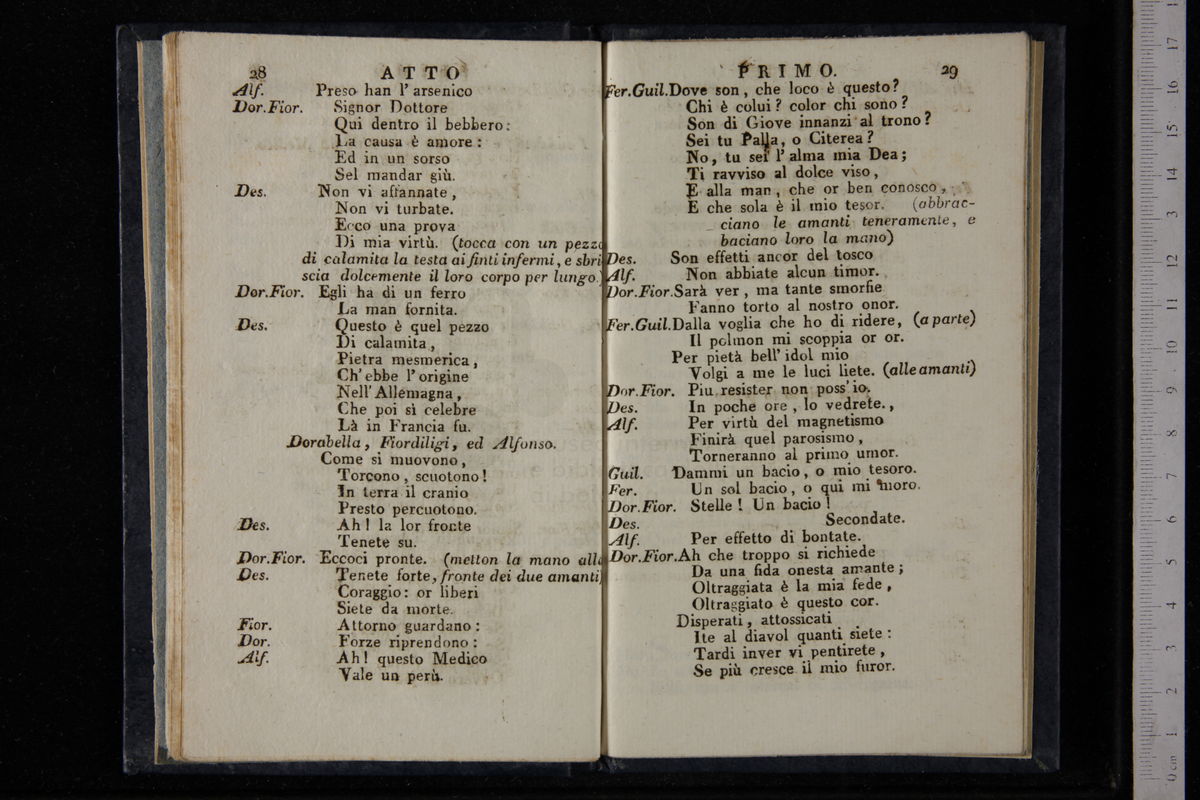 28 ATTO
Alf. Preso han l'arsenico
Dor.Fior. Signor Dottore
Qui dentro il bebbero:
La causa è amore:
Ed in un sorso
Sel mandar giù.
Des. Non vi affannate,
Non vi turbate.
Ecco una prova
Di mia virtù. (tocca con un pezzo
di calamita la testa ai finti infermi, e sbri
scia dolcemente il loro corpo per lungo.)
Dor.Fior. Egli ha di un ferro
La man fornita.
Des. Questo è quel pezzo
Di calamita,
Pietra mesmerica,
Ch'ebbe l'origine
Nell'Allemagna,
Che poi sì celebre
Là in Francia fu.
Dorabella, Fiordiligi, ed Alfonso.
Come si muovono,
Torcono, scuotono!
In terra il cranio
Presto percuotono.
Des. Ah! la lor fronte
Tenete su.
Dor.Fior. Eccoci pronte. (metton la mano alla
Des. Tenete forte, fronte dei due amanti)
Coraggio: or liberi
Siete da morte.
Fior. Attorno guardano:
Dor. Forze riprendono:
Alf. Ah! questo Medico
Vale un perù.
PRIMO. 29
Fer.Guil. Dove son, che loco è questo?
Chi è colui? color chi sono?
Son di Giove innanzi al trono?
Sei tu Palla, o Citerea?
No, tu sei l'alma mia Dea;
Ti ravviso al dolce viso,
E alla man, che or ben conosco,
E che sola è il mio tesor. (abbrac-
ciano le amanti teneramente, e
baciano loro la mano)
Des. Son effetti ancor del tosco
Alf. Non abbiate alcun timor.
Dor.Fior. Sarà ver, ma tante smorfie
Fanno torto al nostro onor.
Fer.Guil. Dalla voglia che ho di ridere, (a parte)
Il polmon mi scoppia or or.
Per pietà bell'idol mio
Volgi a me le luci liete. (alle amanti)
Dor.Fior. Piu resister non poss'io.
Des. In poche ore, lo vedrete.,
Alf. Per virtù del magnetismo
Finirà quel parosismo,
Torneranno al primo umor.
Guil. Dammi un bacio, o mio tesoro.
Fer. Un sol bacio, o qui mi moro.
Dor.Fior. Stelle! Un bacio!
Des. Secondate.
Alf. Per effetto di bontate.
Dor.Fior. Ah che troppo si richiede
Da una fida onesta amante;
Oltraggiata è la mia fede,
Oltraggiato è questo cor.
Disperati, attossicati
Ite al diavol quanti siete:
Tardi inver vi pentirete,
Se più cresce il mio furor.
0 cm 1 2 3 4 5 6 7 8 9 10 11 12 13 14 15 16 17